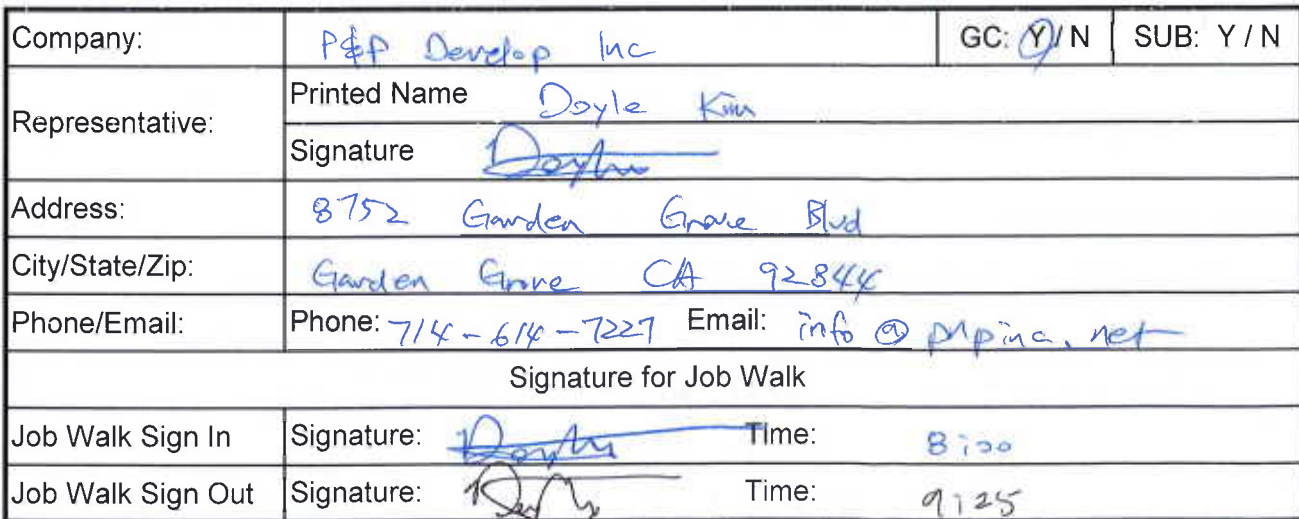 Company: P&P Develop Inc GC: Y / N SUB: Y / N
Representative: Printed Name Doyle Kim
Signature
Address: 8752 Garden Grove Blvd
City/State/Zip: Garden Grove CA 92844
Phone/Email: Phone: 714-614-7227 Email:
Signature for Job Walk
Job Walk Sign In Signature: Time: 8:00
Job Walk Sign Out Signature: Time: 9:25